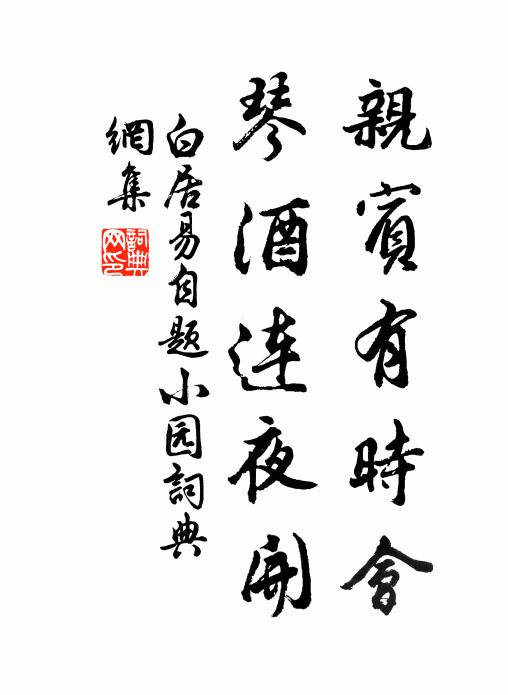 親賓有時會
琴酒连夜開
白居易自题小园詞典
網集
詞典网印